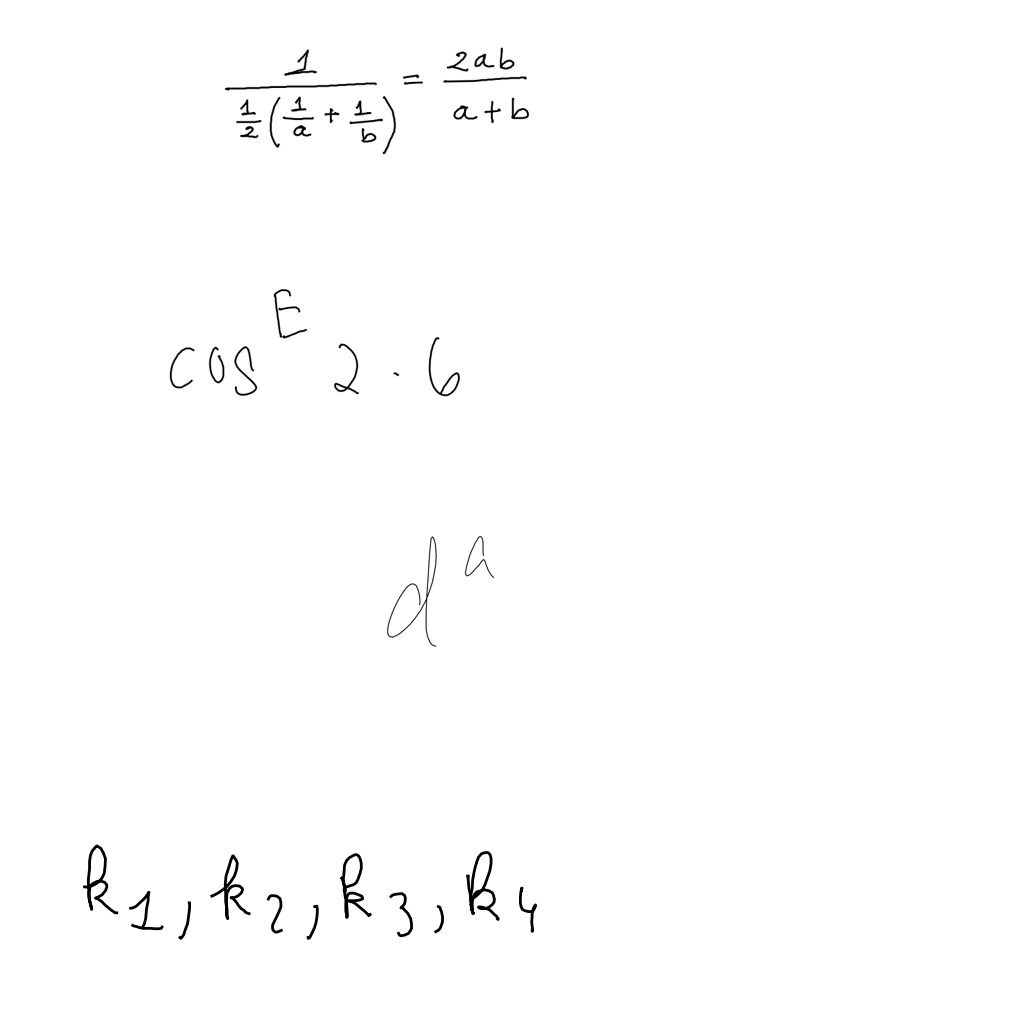 \frac{1}{\frac{1}{2}\left(\frac{1}{a}+\frac{1}{b}\right)}=\frac{2ab}{a+b}
\cos^{E}2\cdot6
d^{a}
k_{1},k_{2},k_{3},k_{4}